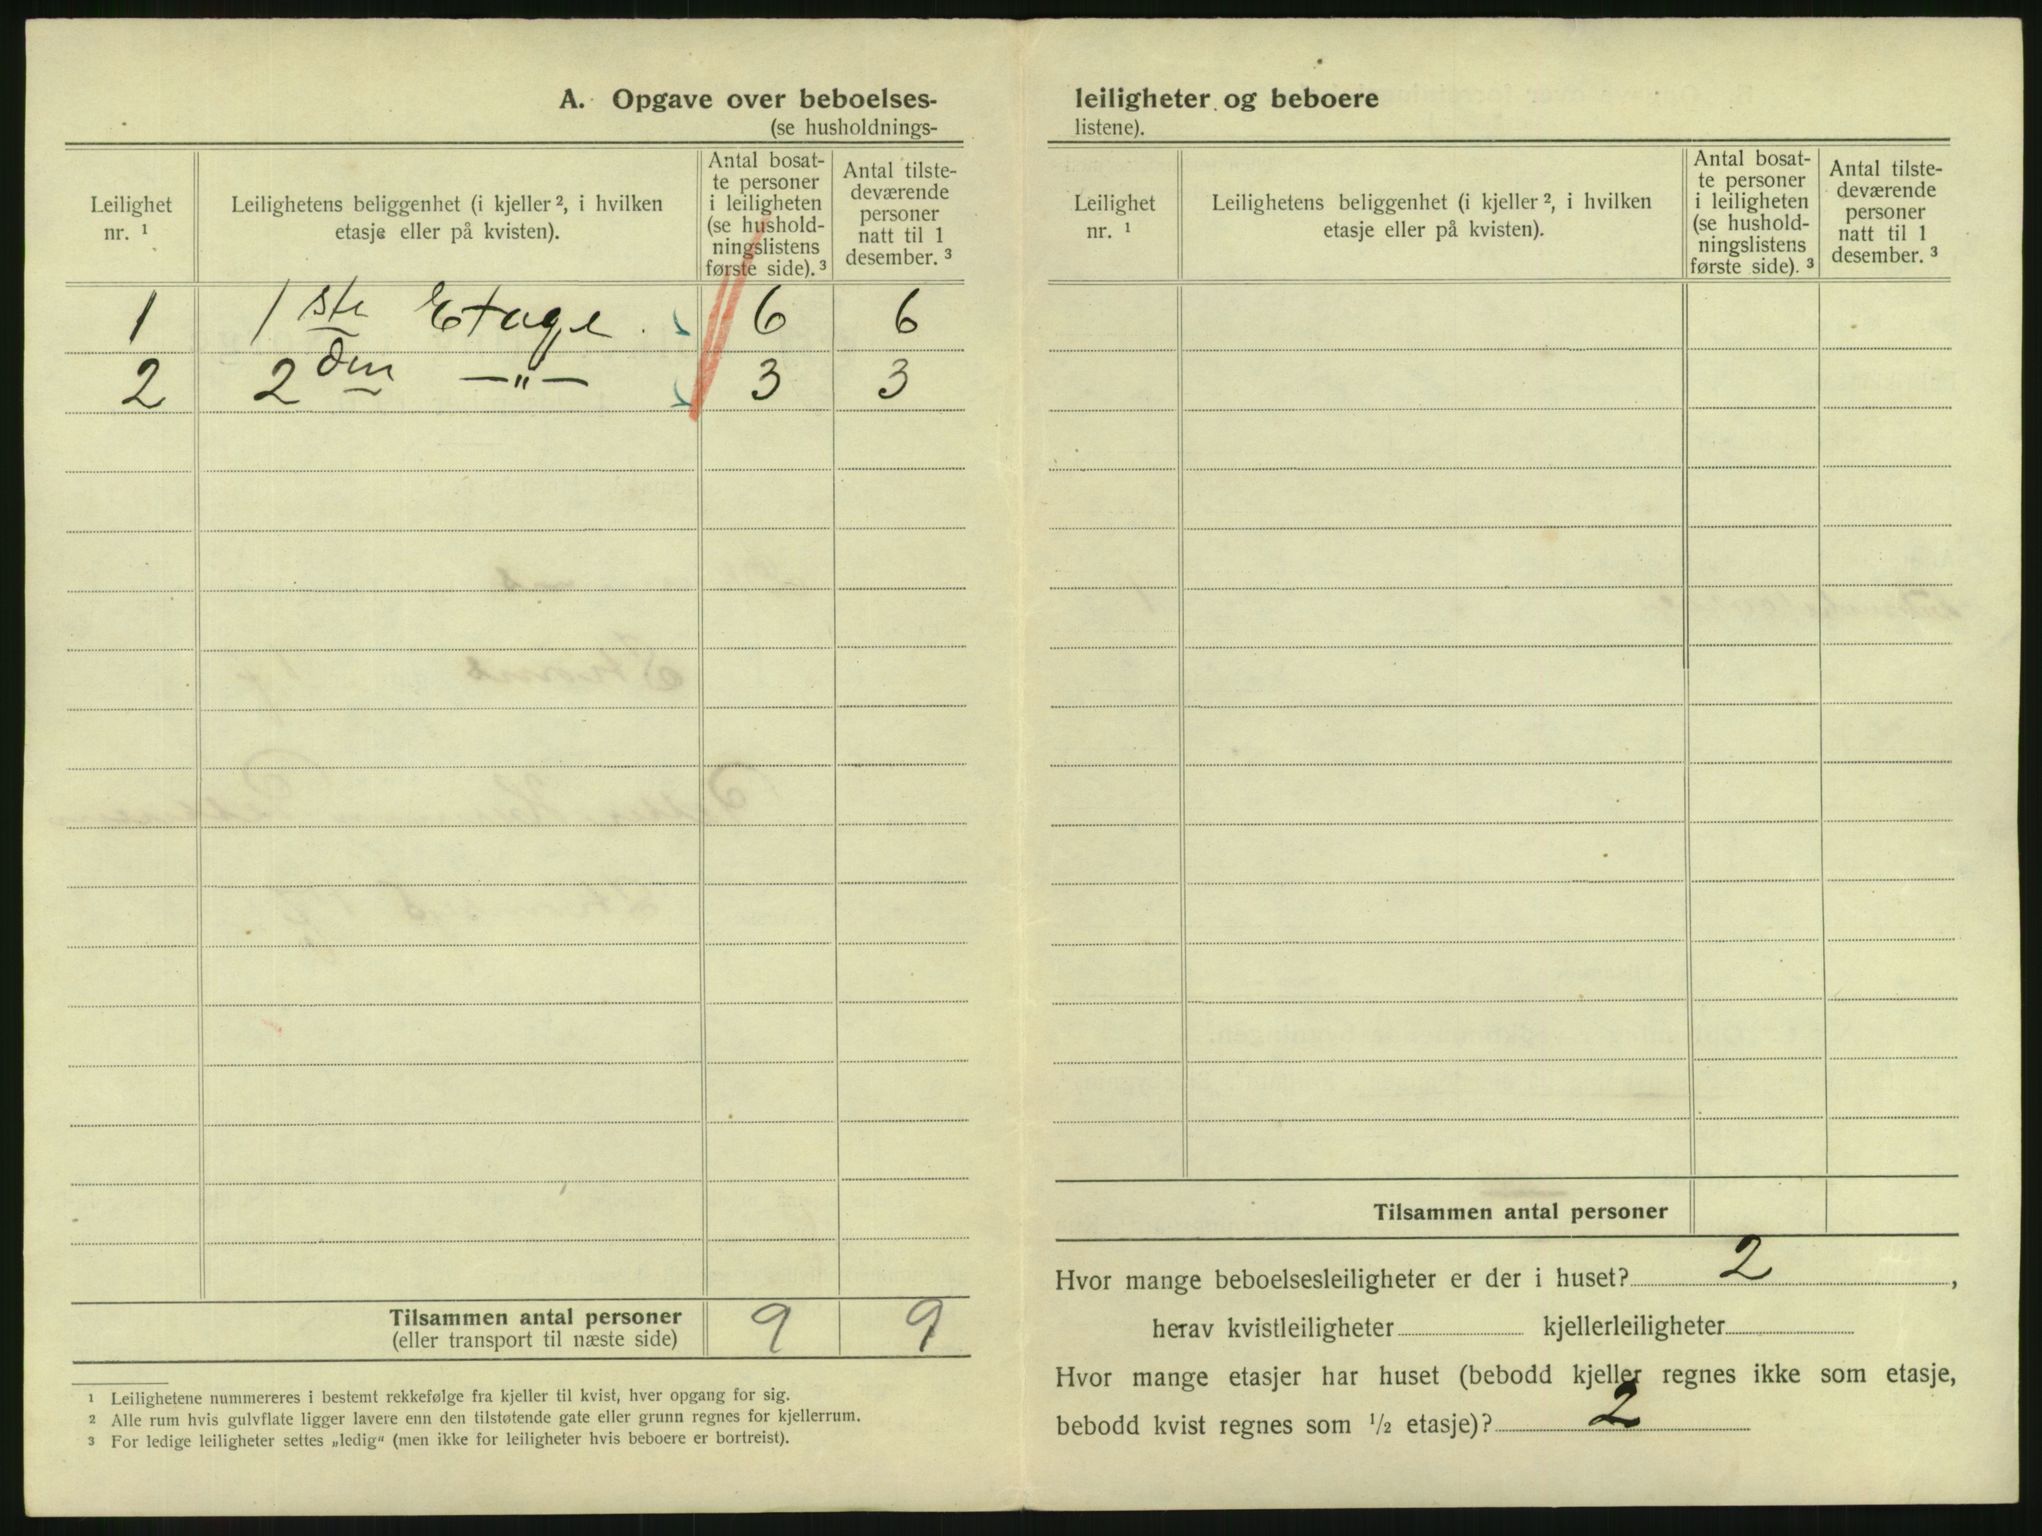 A. Opgave over beboelses-
(se husholdnings-
Leilighet
nr. ¹
Leilighetens beliggenhet (i kjeller ², i hvilken
etasje eller på kvisten).
Antal bosat-
te personer
i leiligheten
(se hushold-
ningslistens
første side). ³
Antal tilste-
deværende
personer
natt til 1
desember. ³
1 1 ste Etage 6 6
2 2 den —„— 3 3
Tilsammen antal personer 9 9
(eller transport til næste side)
¹ Leilighetene nummereres i bestemt rekkefølge fra kjeller til kvist, hver opgang for sig.
² Alle rum hvis gulvflate ligger lavere enn den tilstøtende gate eller grunn regnes for kjellerrum.
³ For ledige leiligheter settes „ledig“ (men ikke for leiligheter hvis beboere er bortreist).
leiligheter og beboere
listene).
Leilighet
nr. ¹
Leilighetens beliggenhet (i kjeller ², i hvilken
etasje eller på kvisten).
Antal bosat-
te personer
i leiligheten
(se hushold-
ningslistens
første side). ³
Antal tilste-
deværende
personer
natt til 1
desember. ³
Tilsammen antal personer
Hvor mange beboelsesleiligheter er der i huset? 2 ,
herav kvistleiligheter kjellerleiligheter
Hvor mange etasjer har huset (bebodd kjeller regnes ikke som etasje,
bebodd kvist regnes som ½ etasje)? 2